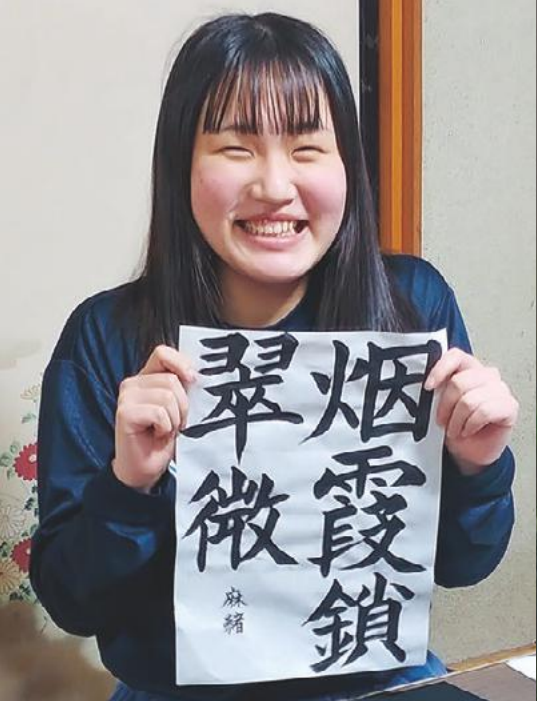 烟霞鎖
翠微
麻緒